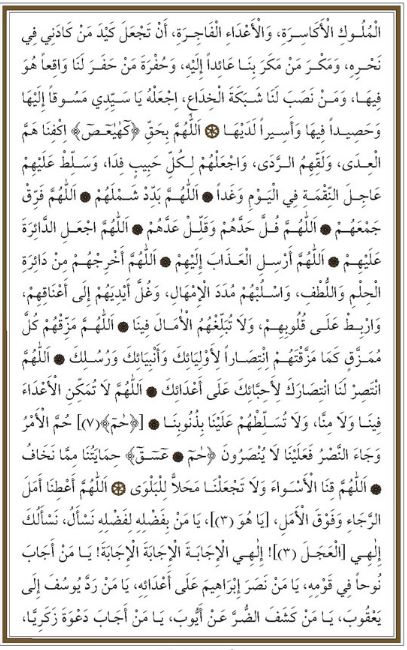 الْمُلُوكِ الْأَكَاسِرَةِ، وَالْأَعْدَاءِ الْفَاجِرَةِ، أَنْ تَجْعَلَ كَيْدَ مَنْ كَادَنِي فِي
نَحْرِهِ، وَمَكْرَ مَنْ مَكَرَ بِنَا عَائِداً إِلَيْهِ، وَحُفْرَةَ مَنْ حَفَرَ لَنَا وَاقِعاً هُوَ
فِيهَا، وَمَنْ نَصَبَ لَنَا شَبَكَةَ الْخِدَاعِ، اجْعَلْهُ يَا سَيِّدِي مَسُوقاً إِلَيْهَا
وَحَصِيداً فِيهَا وَأَسِيراً لَدَيْهَا ۞ اَللّٰهُمَّ بِحَقِّ ﴿كٓهٰيٰعٓصٓ﴾ اِكْفِنَا هَمَّ
الْعِدَى، وَلَقِّهِمُ الرَّدَى، وَاجْعَلْهُمْ لِكُلِّ حَبِيبٍ فِدَا، وَسَلِّطْ عَلَيْهِمْ
عَاجِلَ النِّقْمَةِ فِي الْيَوْمِ وَغَداً ● اَللّٰهُمَّ بَدِّدْ شَمْلَهُمْ ● اَللّٰهُمَّ فَرِّقْ
جَمْعَهُمْ ● اَللّٰهُمَّ فُلَّ حَدَّهُمْ وَقَلِّلْ عَدَّهُمْ ● اَللّٰهُمَّ اجْعَلِ الدَّائِرَةَ
عَلَيْهِمْ ● اَللّٰهُمَّ أَرْسِلِ الْعَذَابَ إِلَيْهِمْ ● اَللّٰهُمَّ أَخْرِجْهُمْ مِنْ دَائِرَةِ
الْحِلْمِ وَاللُّطْفِ، وَاسْلُبْهُمْ مُدَدَ الْإِمْهَالِ، وَغُلَّ أَيْدِيَهُمْ إِلَى أَعْنَاقِهِمْ،
وَارْبِطْ عَلَى قُلُوبِهِمْ، وَلَا تُبَلِّغْهُمُ الْأٰمَالَ فِينَا ● اَللّٰهُمَّ مَزِّقْهُمْ كُلَّ
مُمَزَّقٍ كَمَا مَزَّقْتَهُمْ انْتِصَاراً لِأَوْلِيَائِكَ وَأَنْبِيَائِكَ وَرُسُلِكَ ● اَللّٰهُمَّ
انْتَصِرْ لَنَا انْتِصَارَكَ لِأَحِبَّائِكَ عَلَى أَعْدَائِكَ ● اَللّٰهُمَّ لَا تُمَكِّنِ الْأَعْدَاءَ
فِينَا وَلَا مِنَّا، وَلَا تُسَلِّطْهُمْ عَلَيْنَا بِذُنُوبِنَا ● [﴿حٰمٓ﴾(٧)] حُمَّ الْأَمْرُ
وَجَاءَ النَّصْرُ فَعَلَيْنَا لَا يُنْصَرُونَ ﴿حٰمٓ ● عٓسٓقٓ﴾ حِمَايَتُنَا مِمَّا نَخَافُ
● اَللّٰهُمَّ قِنَا الْأَسْوَاءَ وَلَا تَجْعَلْنَا مَحَلًّا لِلْبَلْوَى ۞ اَللّٰهُمَّ أَعْطِنَا أَمَلَ
الرَّجَاءِ وَفَوْقَ الْأَمَلِ، [يَا هُوَ (٣)]، يَا مَنْ بِفَضْلِهِ لِفَضْلِهِ نَسْأَلُ، نَسْأَلُكَ
إِلٰهِي [الْعَجَلَ (٣)]! إِلٰهِي الْإِجَابَةَ الْإِجَابَةَ الْإِجَابَةَ! يَا مَنْ أَجَابَ
نُوحاً فِي قَوْمِهِ، يَا مَنْ نَصَرَ إِبْرَاهِيمَ عَلَى أَعْدَائِهِ، يَا مَنْ رَدَّ يُوسُفَ إِلَى
يَعْقُوبَ، يَا مَنْ كَشَفَ الضُّرَّ عَنْ أَيُّوبَ، يَا مَنْ أَجَابَ دَعْوَةَ زَكَرِيَّا،